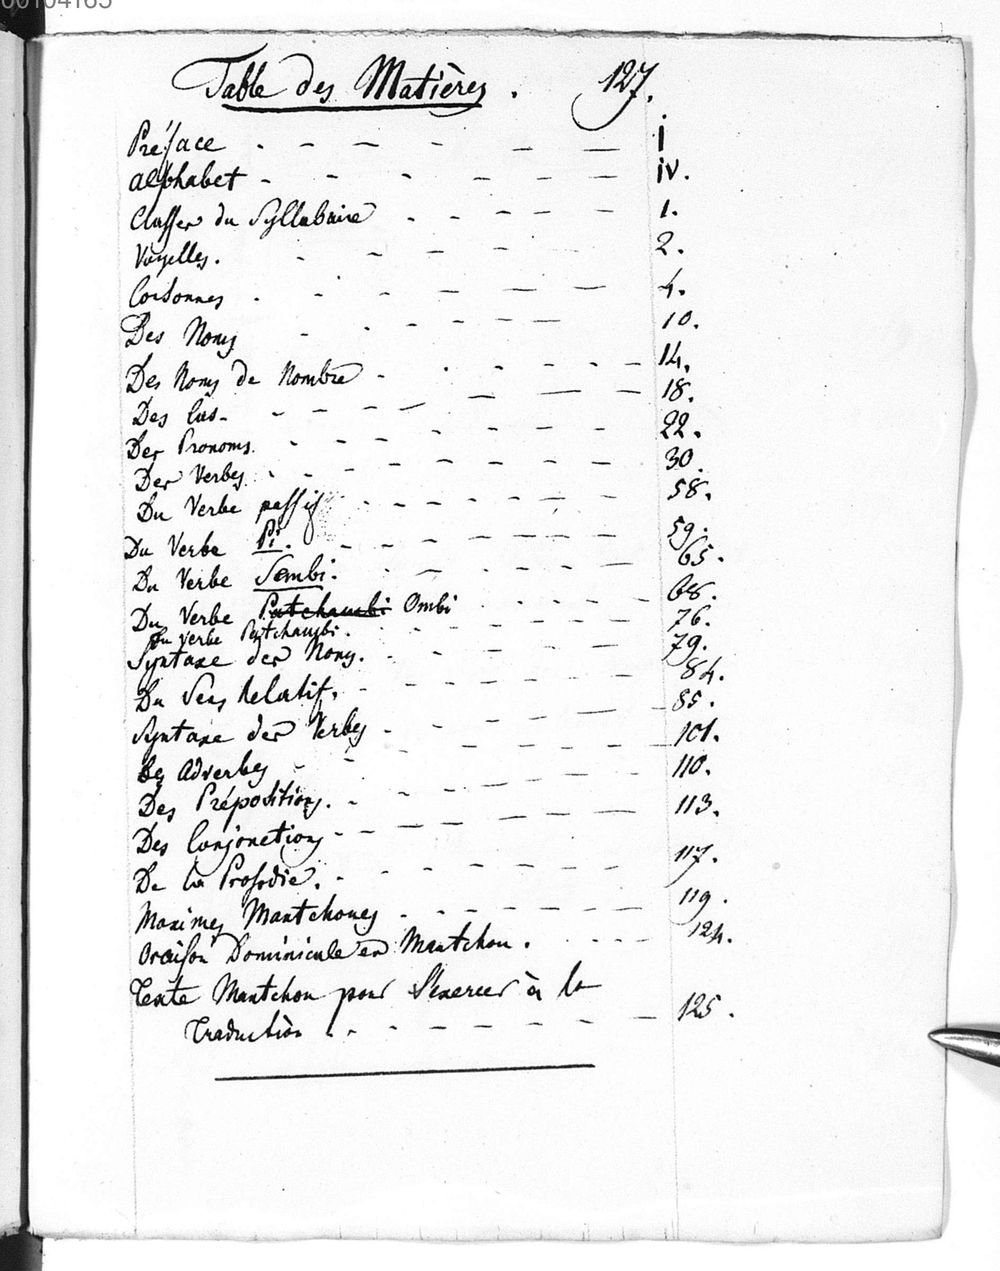 00104165
Table des Matières. 127.
Préface . - - - - - - i
alphabet - - - - - - - iv.
Classes du Syllabaire . - - - - 1.
Voyelles. - - - - - 2.
Consonnes . - - - - - - 4.
Des Noms - - - - - - 10.
Des Noms de Nombre - . - - - - - 14.
Des Cas - - - - - - - - 18.
Des Pronoms. - - - - - - - - 22.
Des Verbes. - - - - - - - - 30.
Du Verbe passif - - - - - - 58.
Du Verbe Pi. - - - - - - - 59.
Du Verbe Sembi. - - - - - - 65.
Du Verbe Patchambi Ombi - - - - - 68.
Du verbe Patchambi. - - - - - - 76.
Syntaxe des Noms. - - - - - - 79.
Du Sens Relatif. - - - - - - - 84.
Syntaxe des Verbes - - - - - - - 85.
Des Adverbes - - - - - - - 101.
Des Prépositions. - - - - - - - 110.
Des Conjonctions - - - - - - - - 113.
De la Prosodie. - - - - - - - 117.
Maximes Mantchoues - - - - - - - 119.
Oraison Dominicale en Mantchou. - - - - 124.
Texte Mantchou pour S'exercer à la
Traduction - - - - - - - - 125.